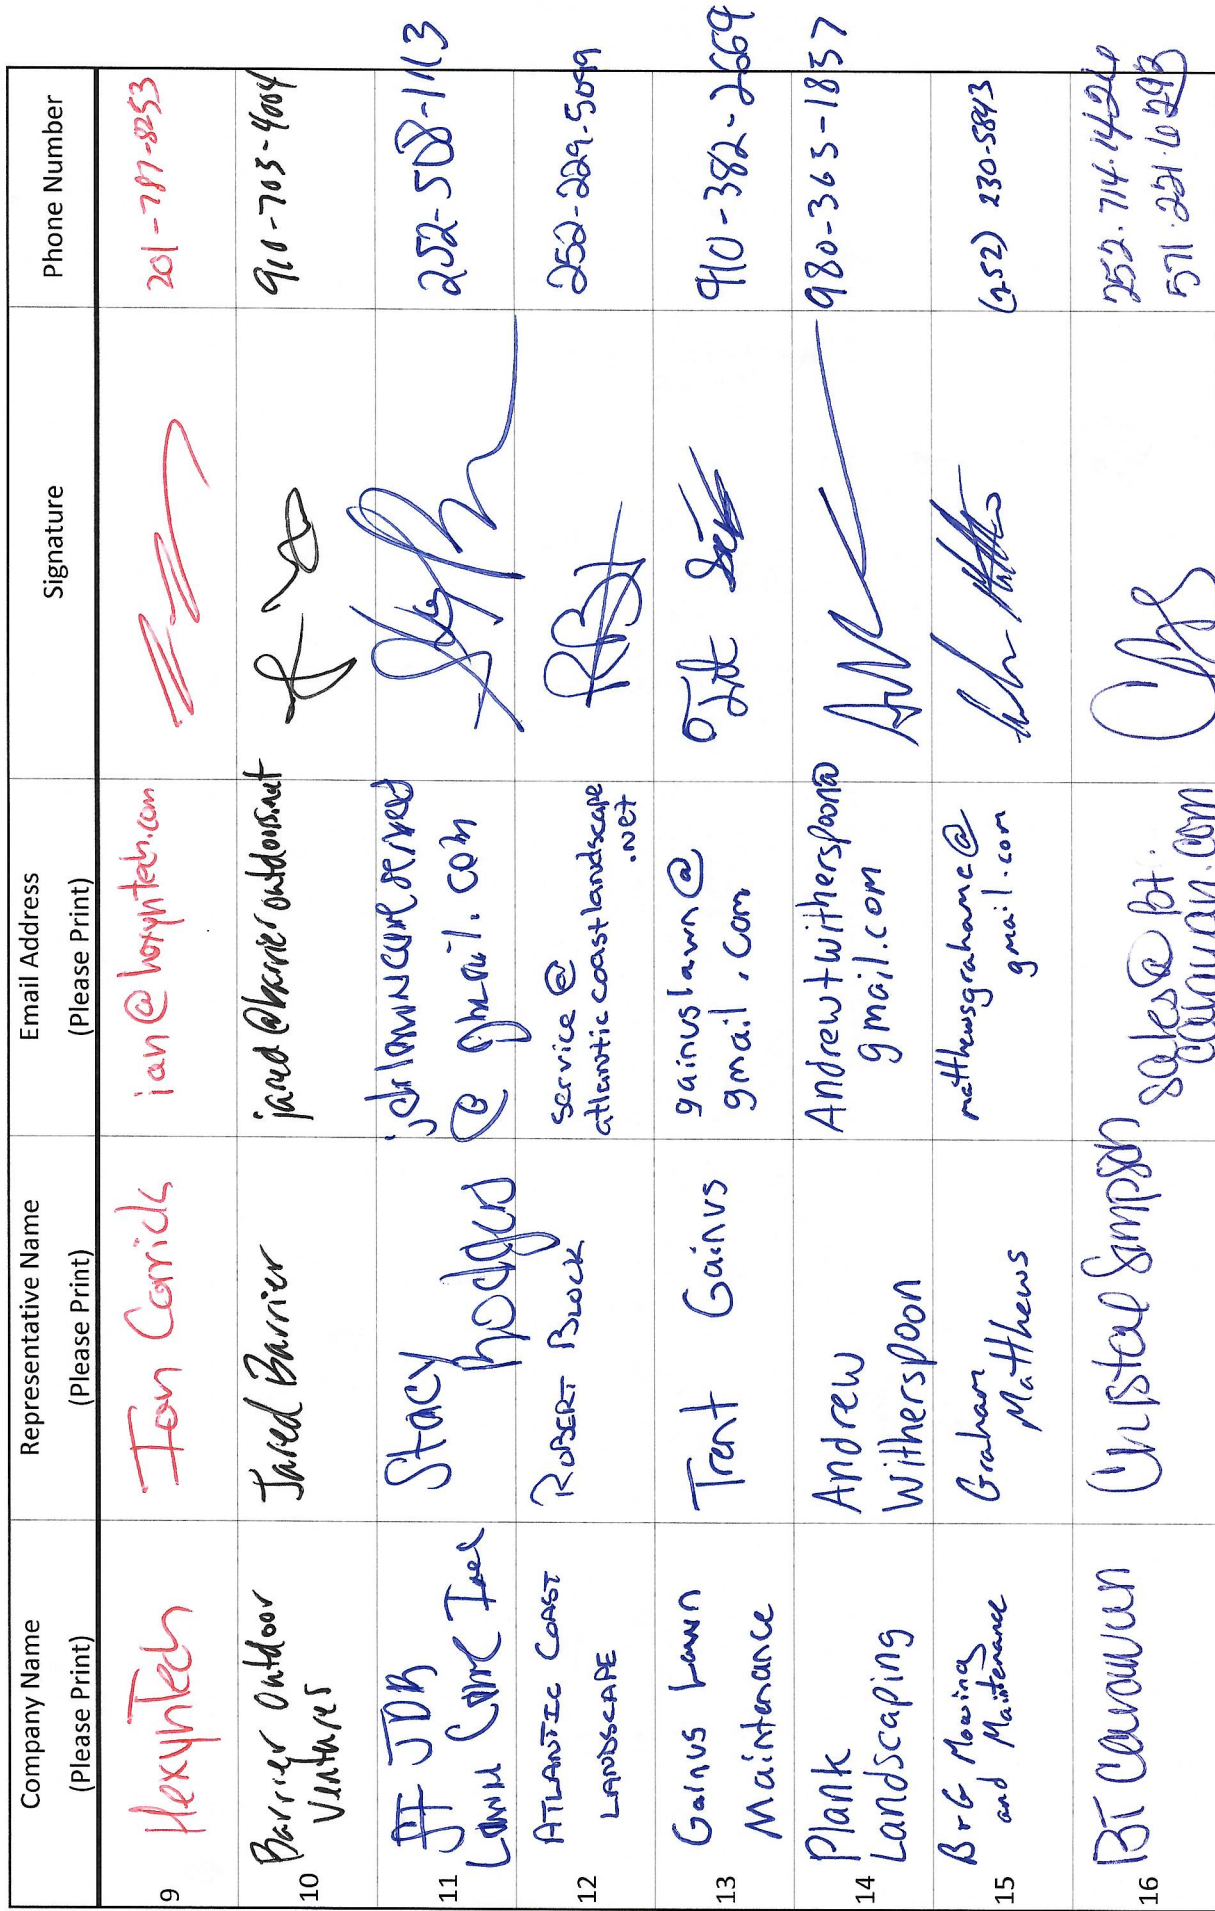 Company Name
(Please Print)
Representative Name
(Please Print)
Email Address
(Please Print)
Signature
Phone Number
9
HexynTech
Ian Carrick
ian@hexyntech.com
201-787-8253
10
Barrier Outdoor
Ventures
Jared Barrier
jared@barrieroutdoors.net
910-703-4004
11
JDR
Lawn Care
Stacy
Rodgers
@gmail.com
252-508-1113
12
ATLANTIC COAST
LANDSCAPE
ROBERT BLOCK
service@
atlanticcoastlandscape
.net
252-229-5099
13
Gainus Lawn
Maintenance
Trent Gainus
gainuslawn@
gmail.com
910-382-2669
14
Plank
Landscaping
Andrew
Witherspoon
Andrewtwitherspoon@
gmail.com
980-363-1857
15
B+G Mowing
and Maintenance
Graham
Matthews
matthewsgrahamc@
gmail.com
(252) 230-5843
16
BT Caravan
Chrystal Simpson
sales@bt.
caravan.com
252.714.1424
571.221.6293